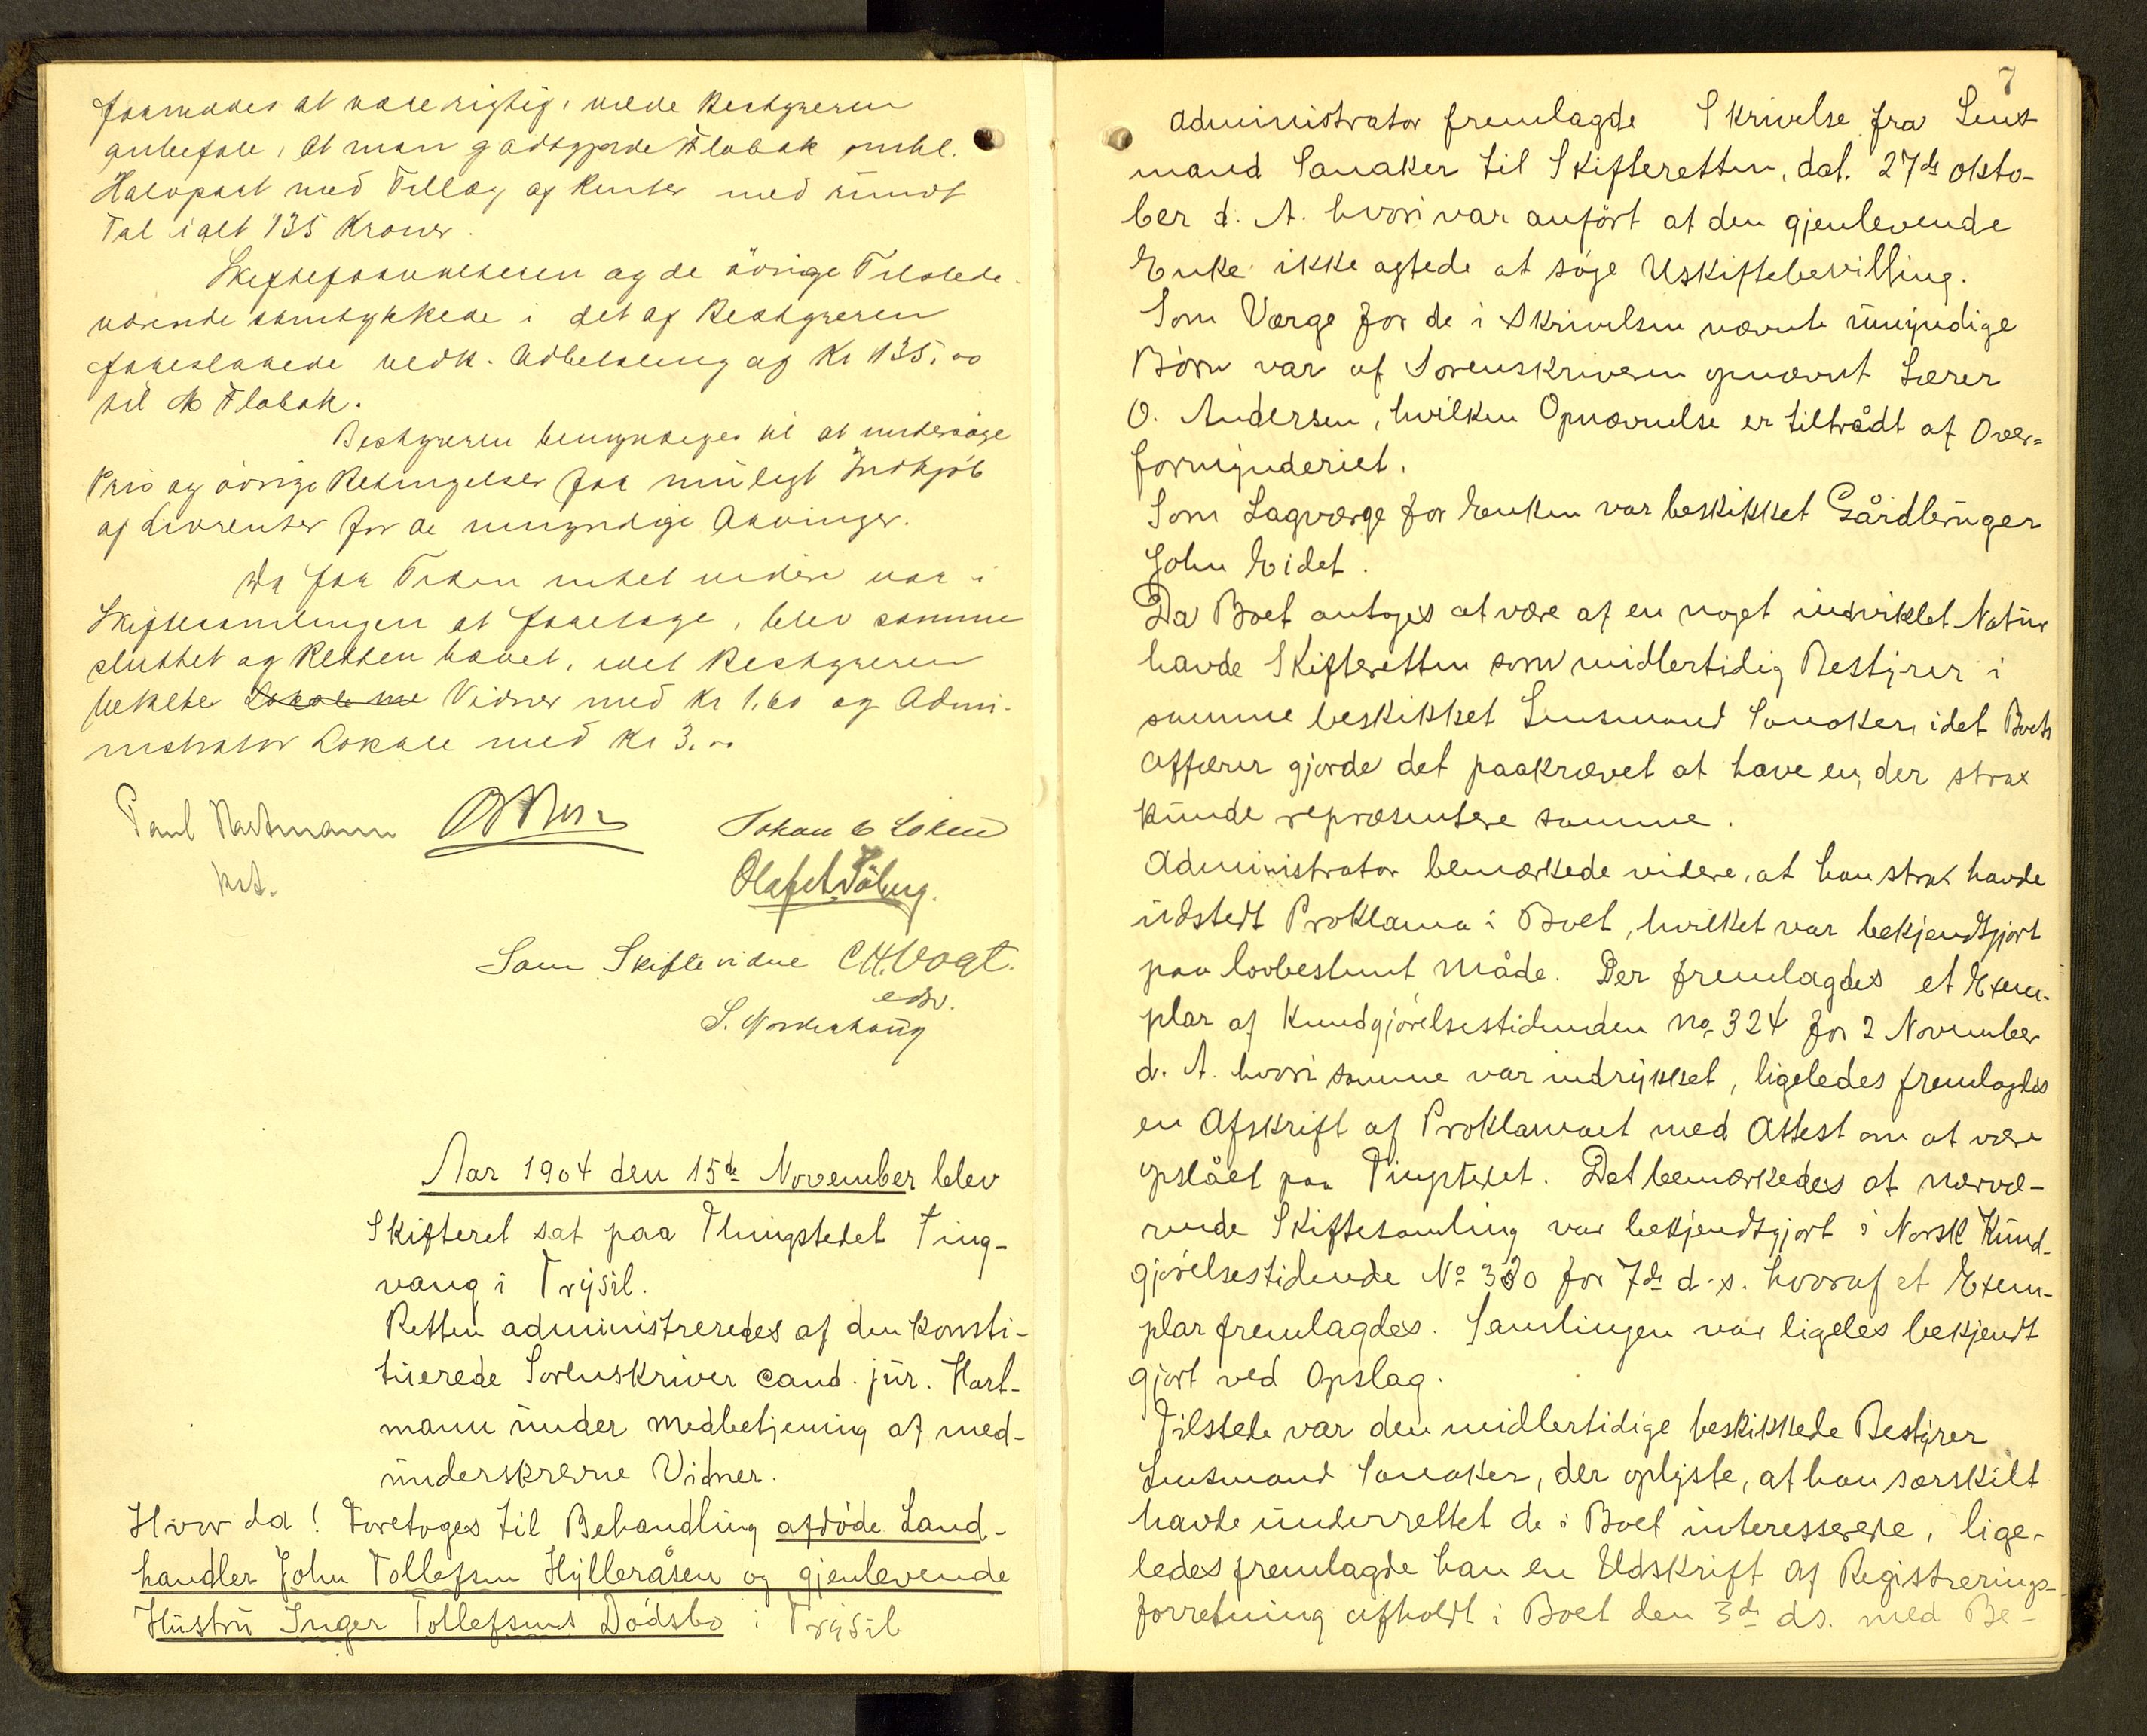 formodes at være rigtig, vilde Bestyreren
anbefale, at man godtgjorde Flobak omhl.
Halvpart med Tillæg af Renter med rundt
Tal ialt 135 Kroner.
Skifteforvalteren og de övrige Tilstede-
værende samtykkede i det af Bestyreren
foreslaaede vedk. Udbetaling af Kr 135.00
til Flobak.
Bestyreren bemyndiges til at undersöge
Pris og övrige Betingelser for muligt Indkjöb
af Livrenter for de umyndige Arvinger.
Da for Tiden intet videre var i
Skiftesamlingen at foretage, blev samme
sluttet og Retten hævet, idet Bestyreren
betalte Vidner med Kr 1,60 og Admi-
nistrator Lokale med Kr 3.00
Paul Hartmann
kst.
Johan Löken
Olaf
Som Skiftevidne C H. Vogt.
edsv.
S. Norderhaug
Aar 1904 den 15de November blev
Skifteret sat paa Thingstedet Ting-
vang i Trysil.
Retten administreredes af den konsti-
tuerede Sorenskriver cand. jur. Hart-
mann under Medbetjening af med-
underskrevne Vidner.
Hvor da! Foretoges til Behandling afdöde Land-
handler John Tollefsen Hylleråsen og gjenlevende
Hustru Inger Tollefsens Dödsbo i Trysil
7
Administrator fremlagde Skrivelse fra Lens
mand Sanaker til Skifteretten, dat. 27de Okto-
ber d. A. hvori var anfört at den gjenlevende
Enke ikke agtede at söge Uskiftebevilling.
Som Værge for de i Skrivelsen nævnte umyndige
Börn var af Sorenskriveren opnævnt Lærer
O. Andersen, hvilken Opnævnelse er tiltrådt af Over=
formynderiet.
Som Lagværge for Enken var beskikket Gårdbruger
John Eidet.
Da Boet antoges at være af en noget indviklet Natur
havde Skifteretten som midlertidig Bestyrer i
samme beskikket Lensmand Sanaker, idet Boets
Affærer gjorde det paakrævet at have en, der strax
kunde repræsentere samme.
Administrator bemærkede videre, at han strax havde
udstedt Proklama i Boet, hvilket var bekjendtgjort
paa lovbestemt Måde. Der fremlagdes et Exem-
plar af Kundgjörelsestidenden No 324 for 2 November
d. A. hvori samme var indrykket, ligeledes fremlagdes
en Afskrift af Proklamaet med Attest om at være
opslået paa Tingstedet. Det bemærkedes at nærvæ-
rende Skiftesamling var bekjendtgjort i Norsk Kund-
gjörelsestidende No 330 for 7de d. s. hvoraf et Exem-
plar fremlagdes. Samlingen var ligeles bekjendt
gjort ved Opslag.
Tilstede var den midlertidige beskikkede Bestyrer
Lensmand Sanaker, der oplyste, at han særskilt
havde underrettet de i Boet interesserede, lige-
ledes fremlagde han en Udskrift af Registrerings-
forretning afholdt i Boet den 3de ds. med Be-